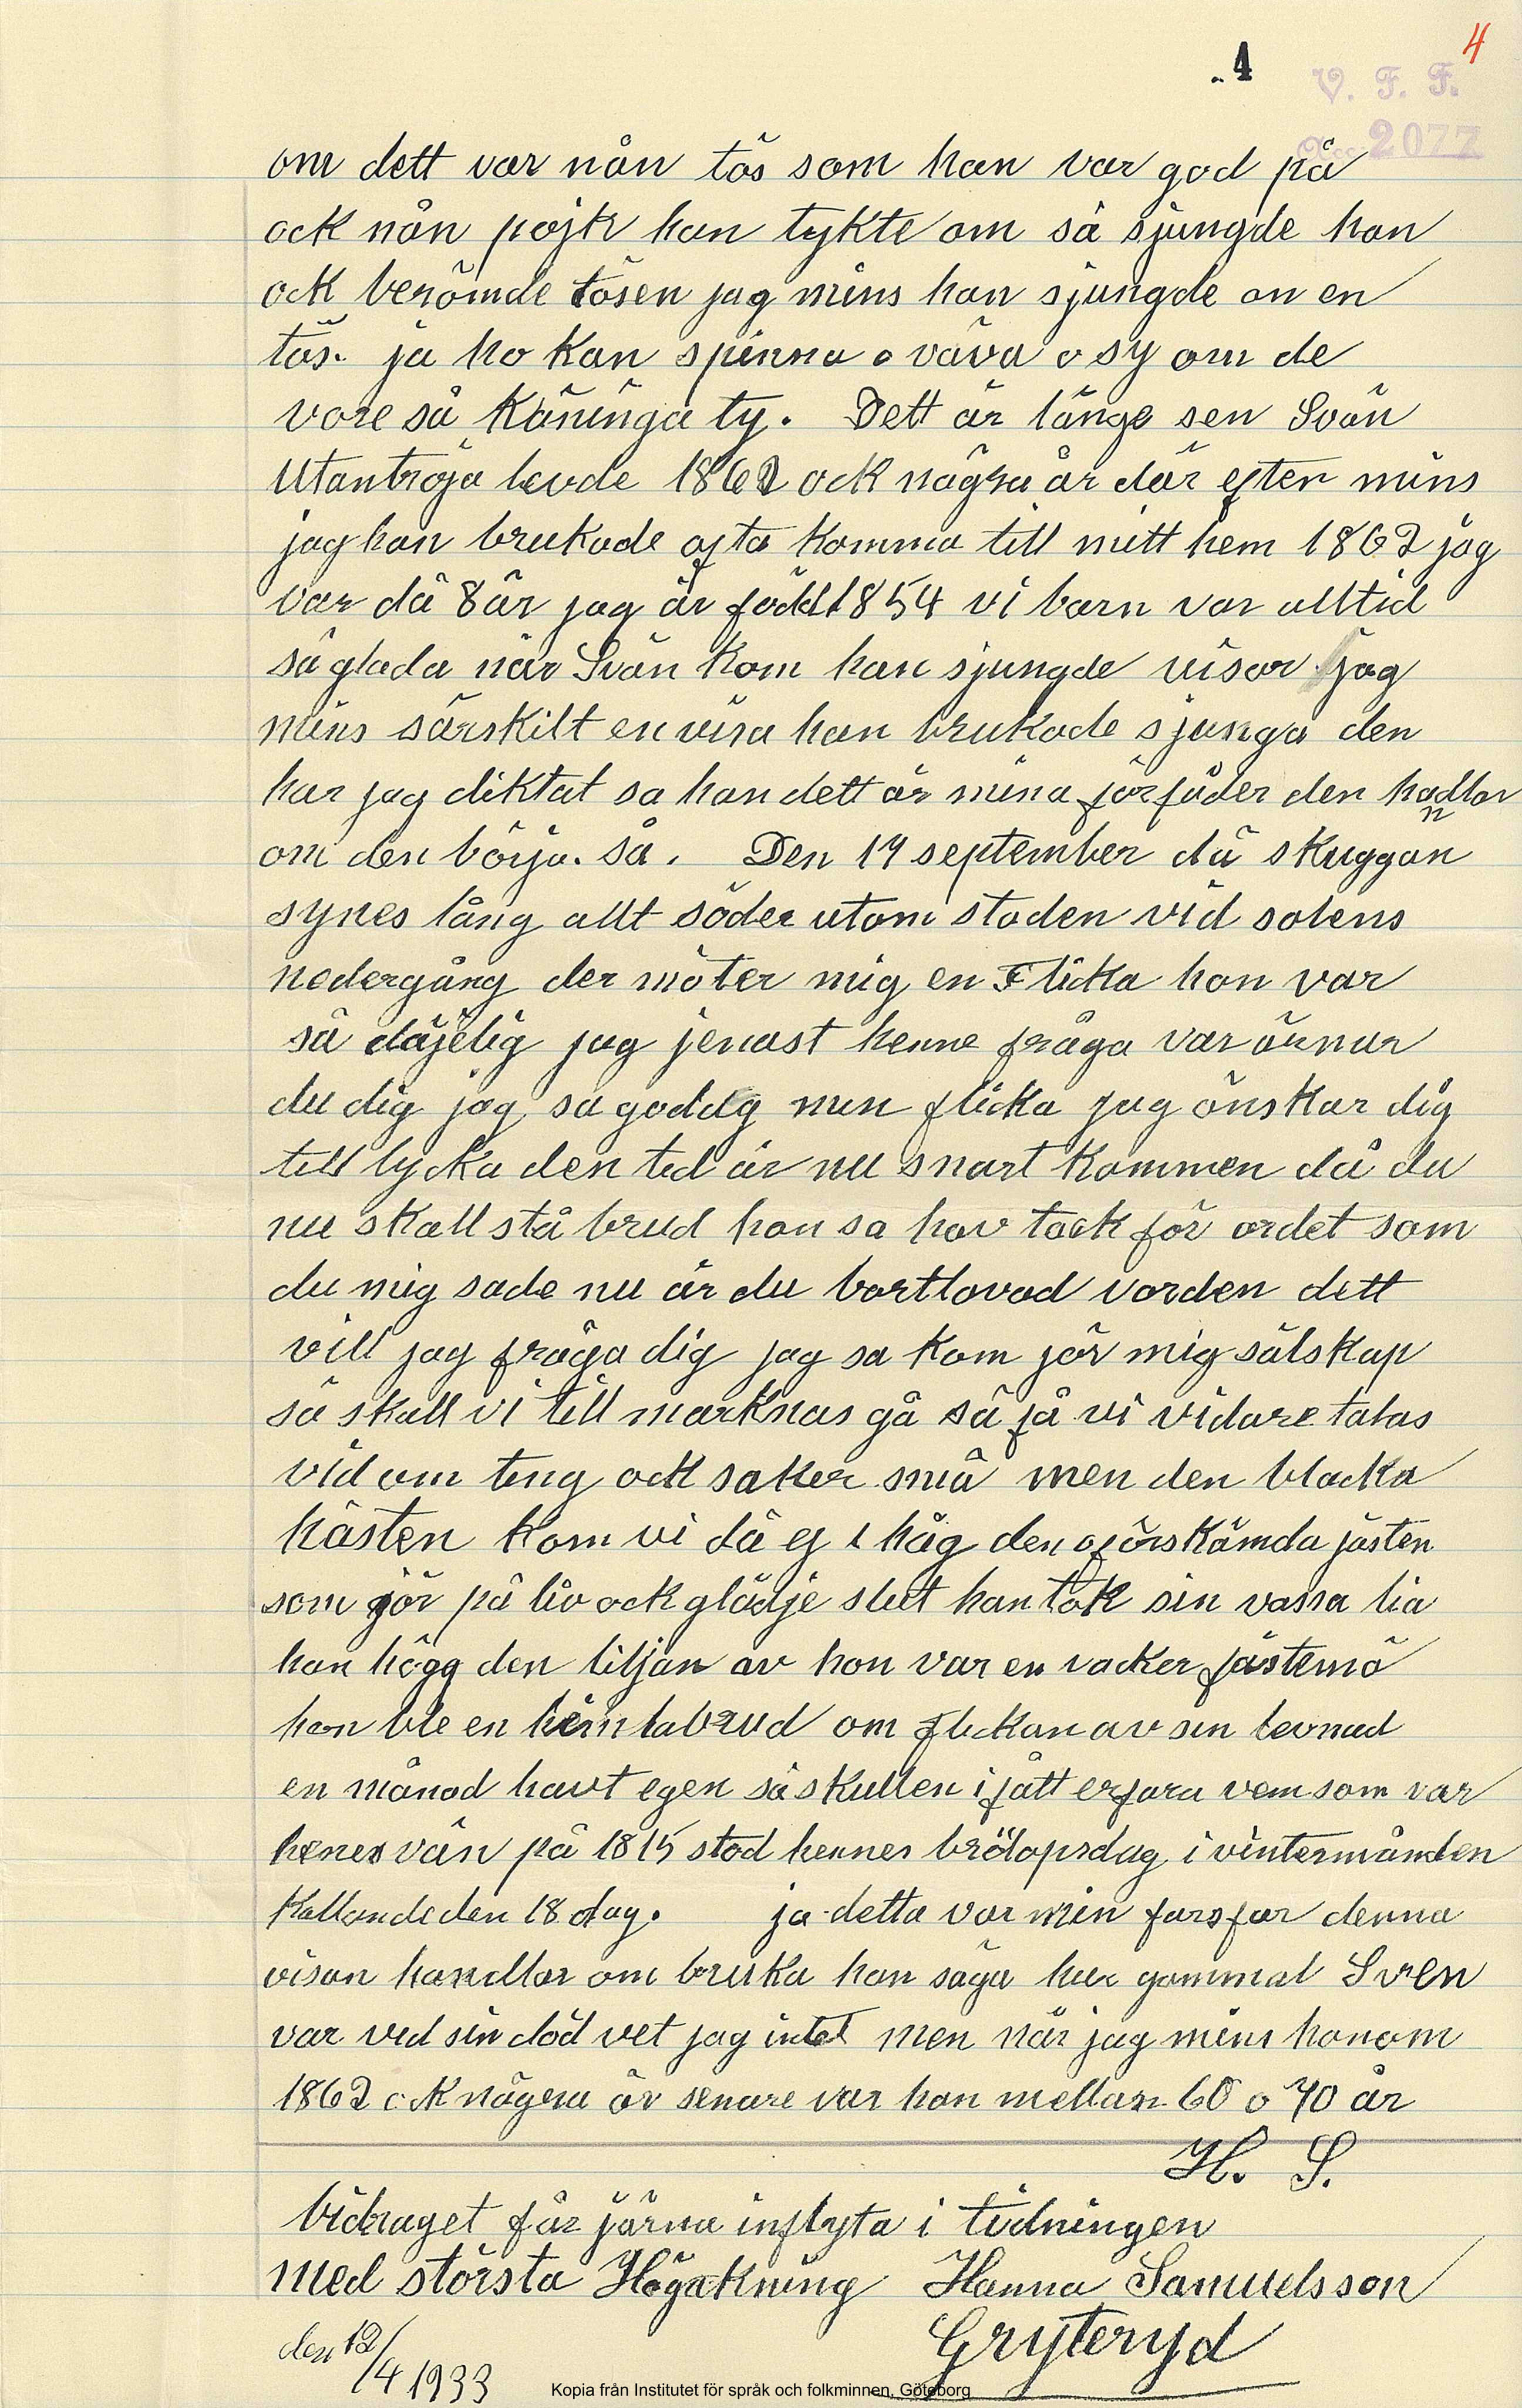 4
4
V. F. F.
acc 2077
om dett var nån tös som han var god på
ock nån pojk han tykte om så sjungde han
ock berömde tösen jag mins han sjungde on en
tös. ja ho kan spinna o väva o sy om de
vore så käninga ty. Dett är länge sen Svän
Utantröja levde 1862 ock några år där efter mins
jag han brukade ofta komma till mitt hem 1862 jag
var då 8 år jag är född 1854 vi barn var alltid
så glada när Svän kom han sjungde visor jag
mins särskilt en visa han brukade sjunga den
har jag diktat sa han dett är mina förfäder den hadlar
n
om den börja. så. Den 19 september då skuggan
synes lång allt söder utom staden vid solens
nedergång der möter mig en Flicka hon var
så däjelig jag jenast henne fråga var ärnar
du dig jag sa goddag min flicka jag önskar dig
till lycka den tid är nu snart kommen då du
nu skall stå brud hon sa hav tack för ordet som
du mig sade nu är du bortlovad vorden dett
vill jag fråga dig jag sa kom jör mig sälskap
så skall vi till marknas gå så få vi vidare talas
vid om ting ock saker små men den blacka
hästen kom vi då ej i håg den oförskämda jästen
som gör på liv ock glädje slut han tok sin vassa lia
han högg den liljan av hon var en vacker fästemö
hon ble en himlabrud om flickan av sin levnad
en månad havt egen så skullen i fått erfara vem som var
henes vän på 1815 stod hennes brölopsdag i vintermånden
kallande den 18 dag. ja detta var min farsfar denna
visan handlar om bruka han säga hur gammal Sven
var vid sin död vet jag intet men när jag mins honom
1862 ock några år senare var han mellan 60 o 70 år
H. S.
bidraget får järna inflyta i tidningen
med största Högakning Hanna Samuelsson
Gryteryd
den 12/4 1933
Kopia från Institutet för språk och folkminnen, Göteborg